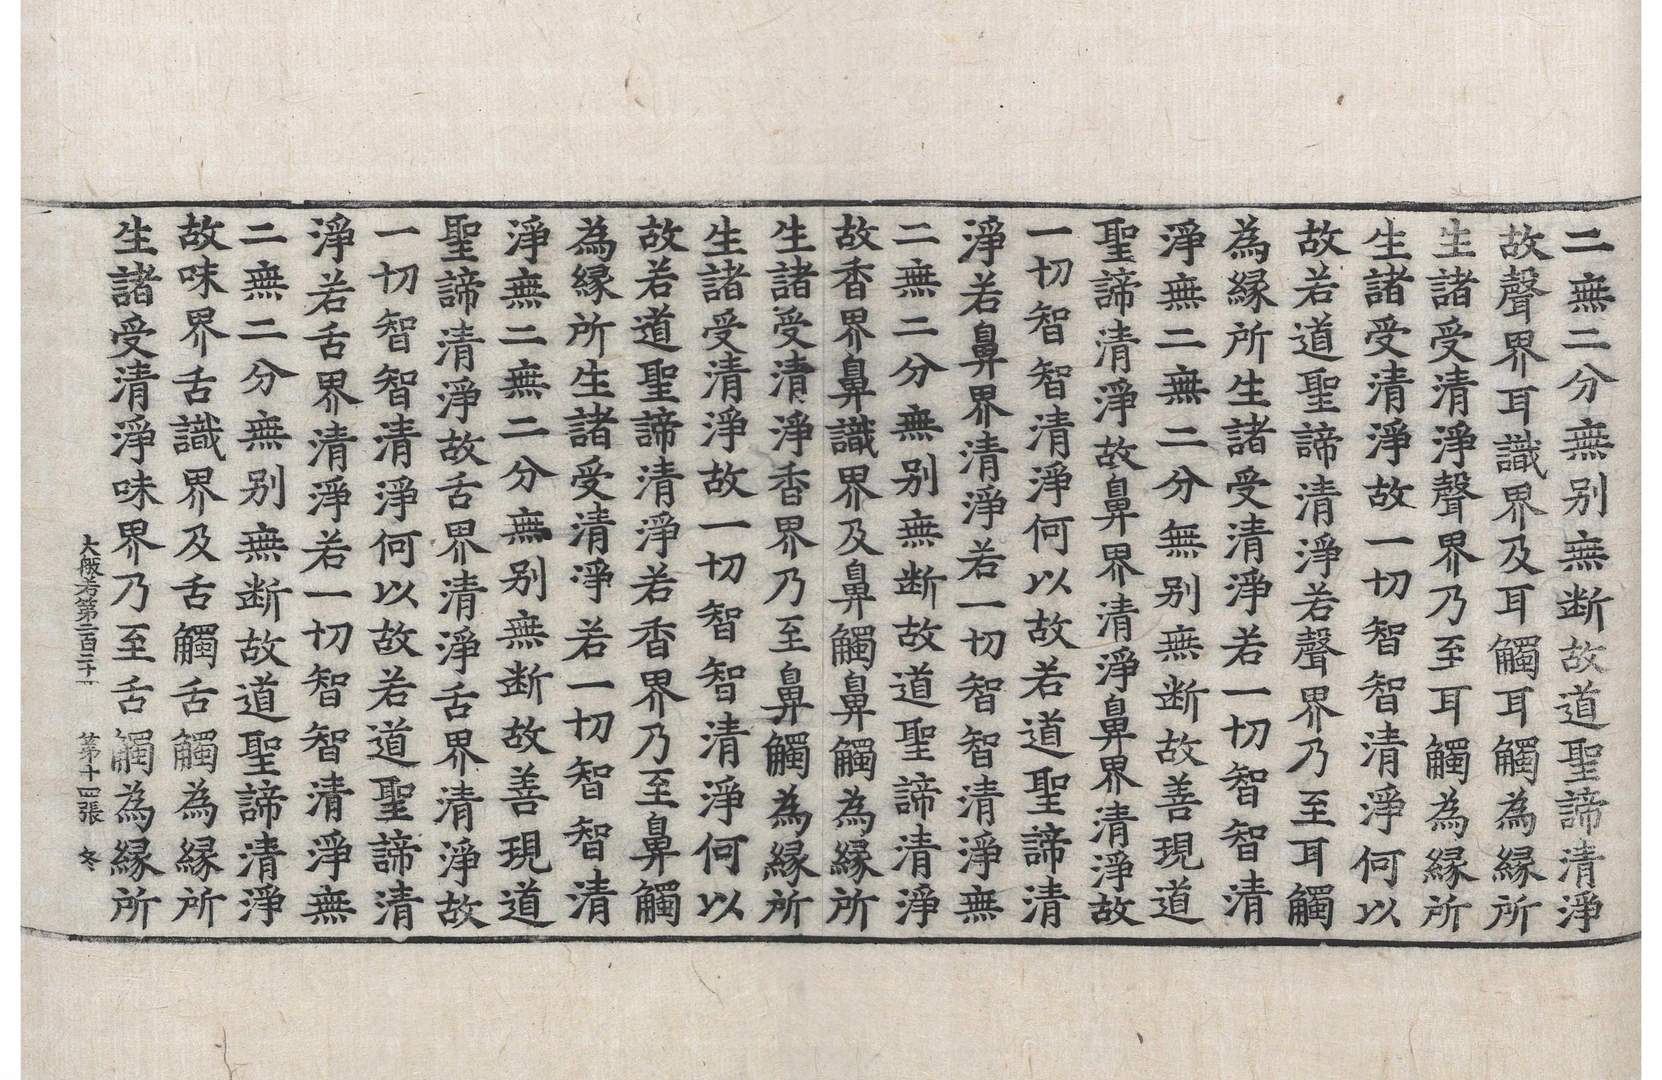 二無二分無别無断故道聖諦清淨
故聲界耳識界及耳觸耳觸為縁所
生諸受清淨聲界乃至耳觸為縁所
生諸受清淨故一切智智清淨何以
故若道聖諦清淨若聲界乃至耳觸
為縁所生諸受清淨若一切智智清
淨無二無二分無别無断故善現道
聖諦清淨故鼻界清淨鼻界清淨故
一切智智清淨何以故若道聖諦清
淨若鼻界清淨若一切智智清淨無
二無二分無别無断故道聖諦清淨
故香界鼻識界及鼻觸鼻觸為縁所
生諸受清淨香界乃至鼻觸為縁所
生諸受清淨故一切智智清淨何以
故若道聖諦清淨若香界乃至鼻觸
為縁所生諸受清淨若一切智智清
淨無二無二分無别無断故善現道
聖諦清淨故舌界清淨舌界清淨故
一切智智清淨何以故若道聖諦清
淨若舌界清淨若一切智智清淨無
二無二分無别無断故道聖諦清淨
故味界舌識界及舌觸舌觸為縁所
生諸受清淨味界乃至舌觸為縁所
大般若第二百三十 第十四張 冬